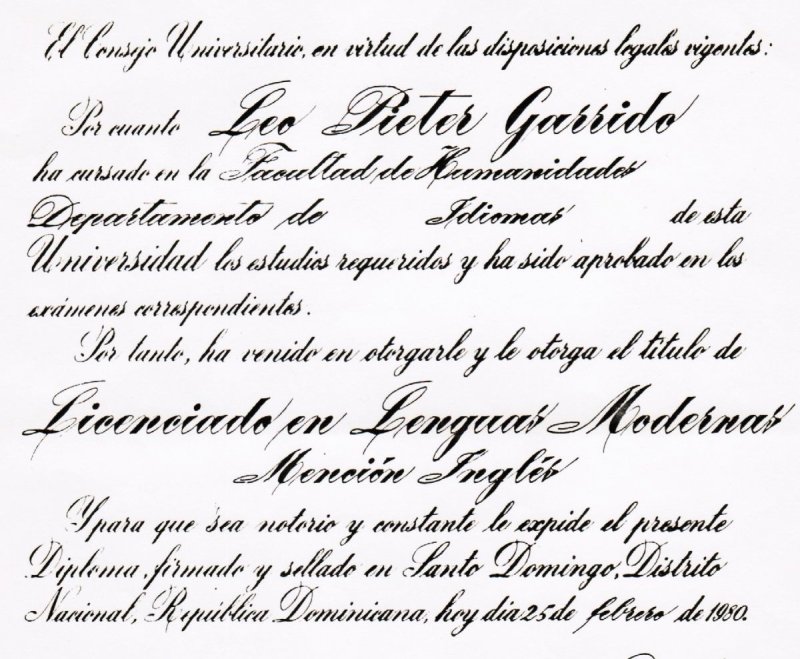 El Consejo Universitario, en virtud de las disposiciones legales vigentes:
Por cuanto Leo Pieter Garrido
ha cursado en la Facultad de Humanidades
Departamento de Idiomas de esta
Universidad los estudios requeridos y ha sido aprobado en los
exámenes correspondientes.
Por tanto, ha venido en otorgarle y le otorga el título de
Licenciado en Lenguas Modernas
Mención Inglés
Y para que sea notorio y constante le expide el presente
Diploma, firmado y sellado en Santo Domingo, Distrito
Nacional, República Dominicana, hoy día 25 de febrero de 1980.